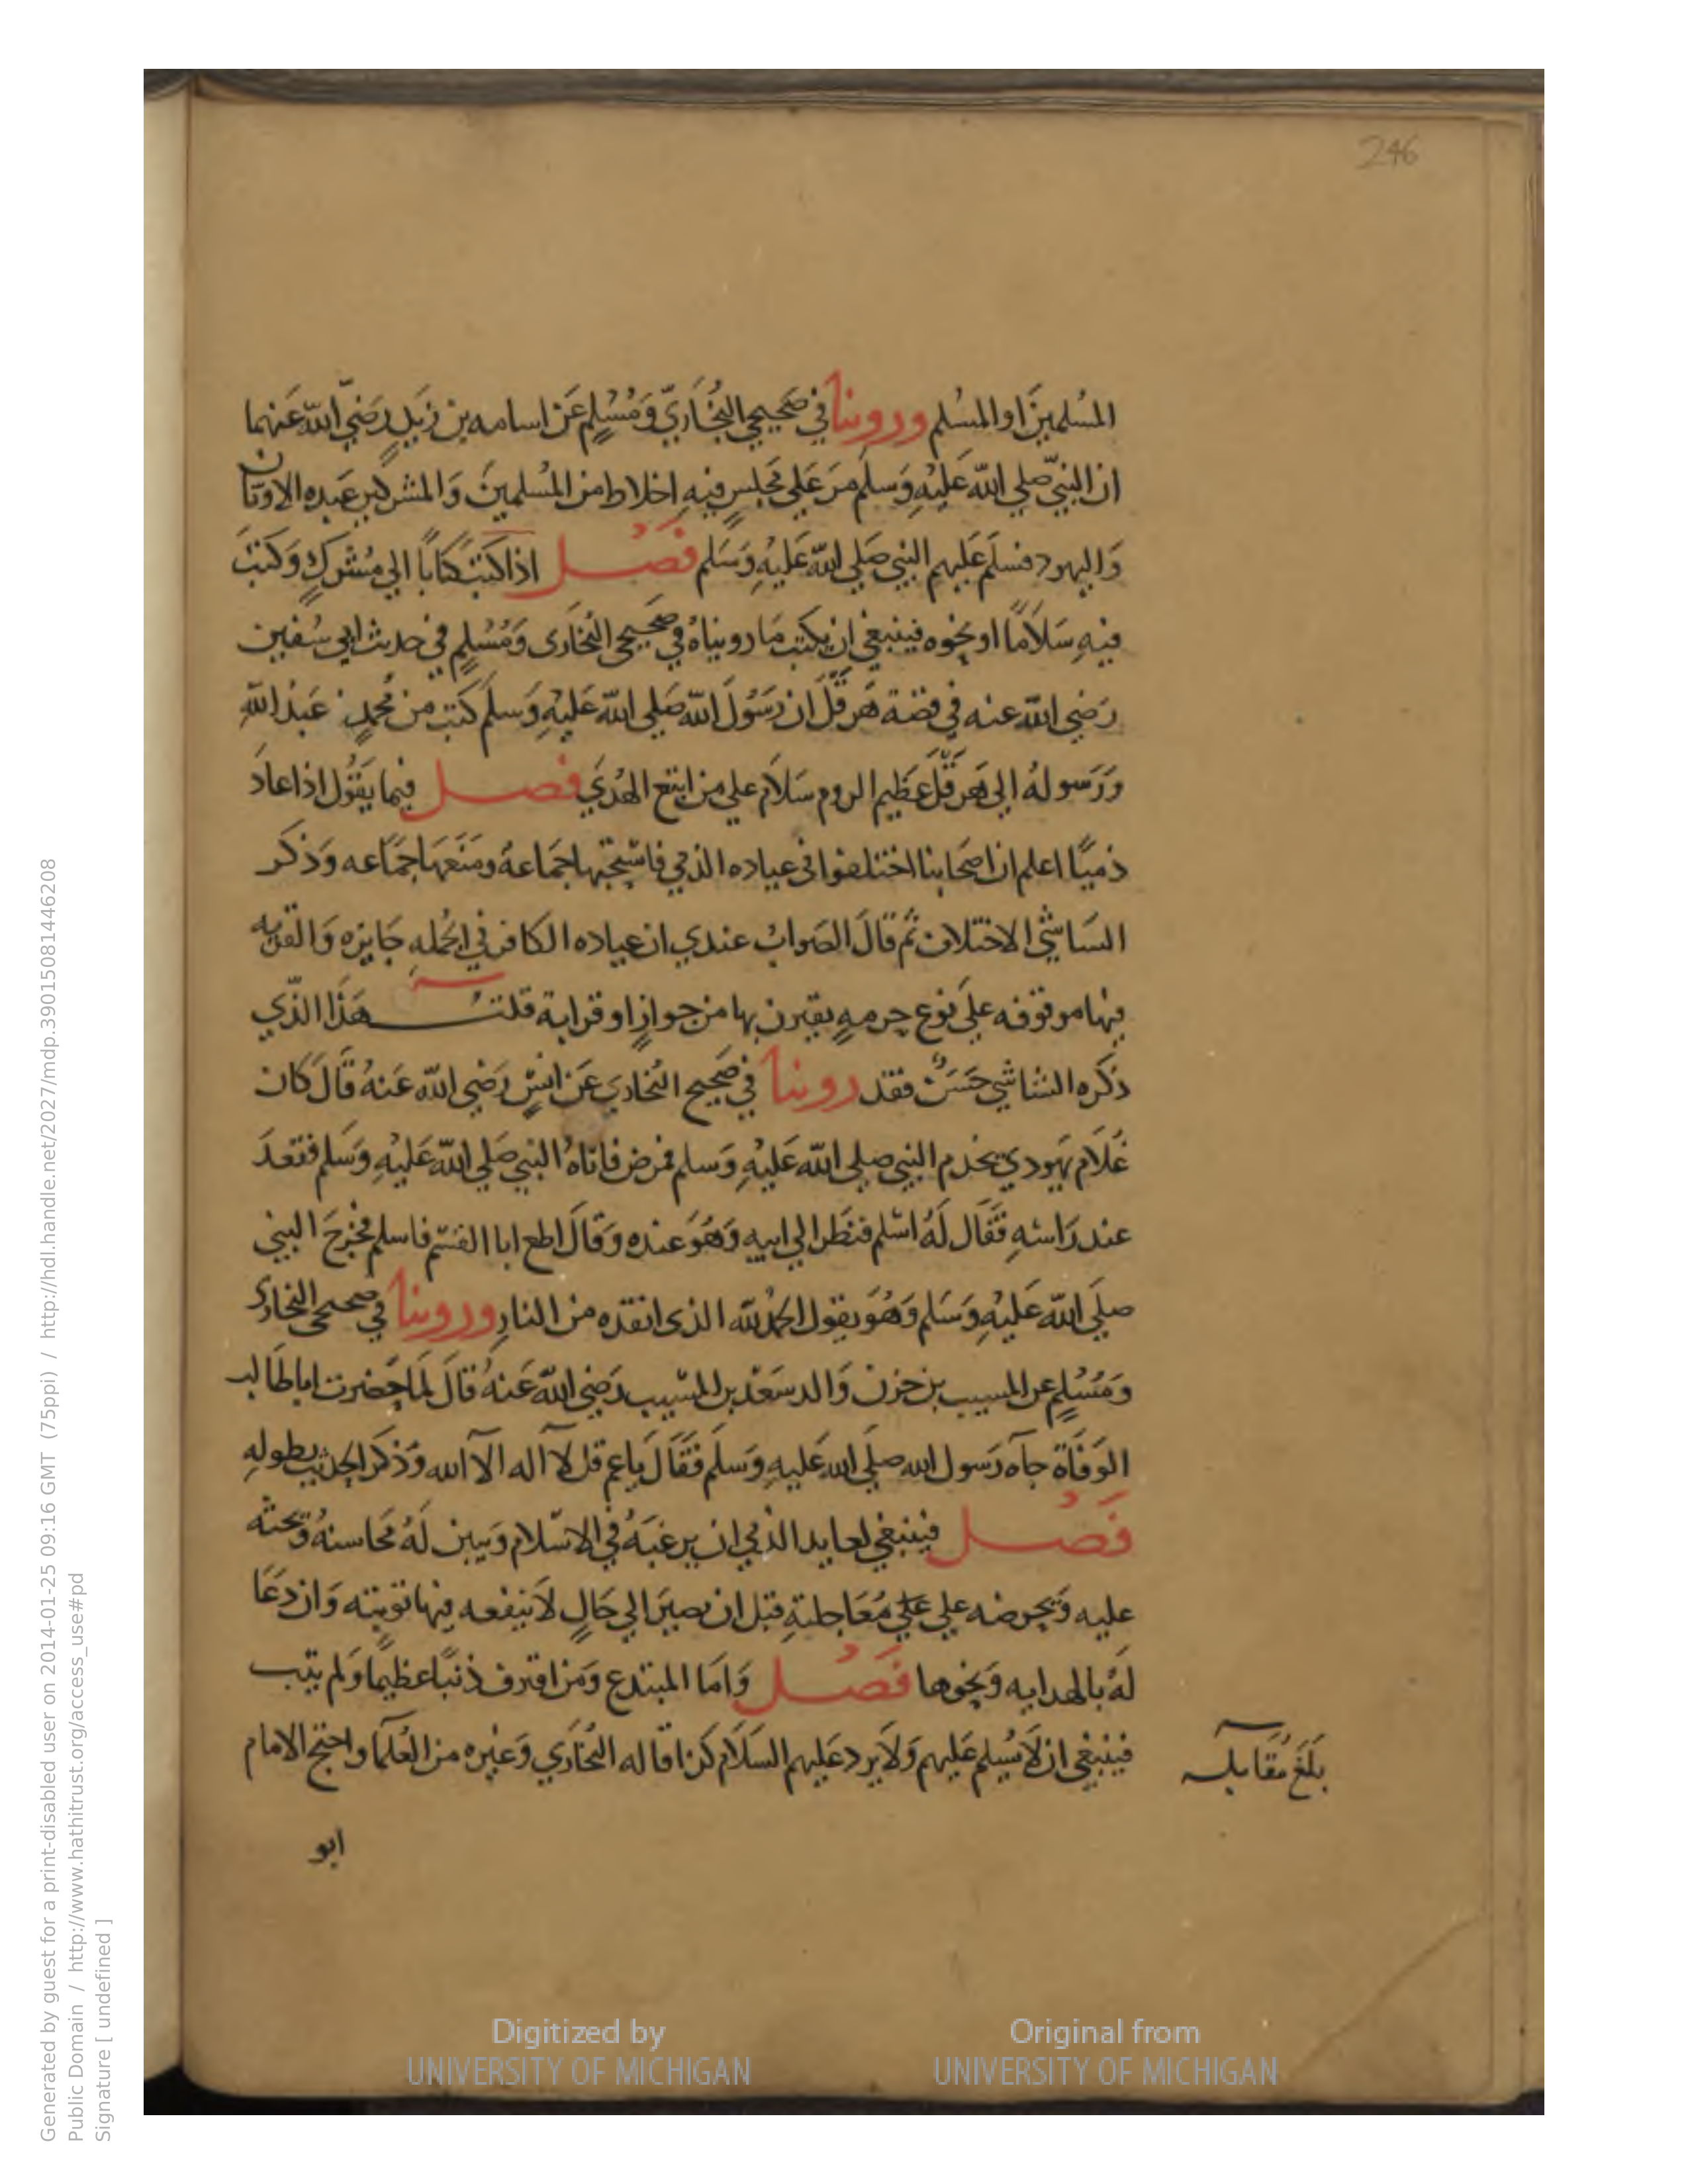 246
المُسْلمِينَ او المسُلم وروينا في صَحيحي البُخَاريّ وَمُسْلِمٍ عَن اسامه بن زيَدٍ رَضيَ الله عَنهما
ان النبيّ صلي الله عَليْهِ وَسَلم مرَ عَلي مجَلسٍ فيهِ اخلاط من المُسْلمينَ وَالمشركين عَبده الاوثان
وَاليهود فسَلمَ عَليهم النبي صَلي الله عَليْهِ وَسَلم فَصْل اذا كتبَ كتابًا الي مُشْركٍ وَكتبَ
فيهِ سَلاَمًا او نحوه فينبغي ان يكتب مَا رويناهُ في صَحيحي البُخَارى وَمُسْلمٍ في حديث ابي سُفين
رَضي الله عنه في قصة هَرقلَ ان رَسُولَ الله صَلي الله عَليْهِ وَسلم كتب من مُحمدٍ عَبْد اللهِ
وَرَسولهُ الي هَرقلَ عَظيم الروم سَلاَم علي من اتبع الهُدَي فصل فيما يَقُول اذا عادَ
ذميًّا اعلم ان اصحَابنا اختلفوا في عياده الذمي فاستحبّها جَماعَةُ ومَنَعهَا جَمَاعه وَذكر
السَاشي الاختلاف ثم قَالَ الصَوابُ عندي ان عياده الكافر في الجُمله جَايزه وَالقربه
فيها موقوفه علَي نوع حرمهٍ يقترن بها من جوازٍ او قرابة قلت هَذا الّذي
ذكره الشاشي حَسَنٌ فقد روينا في صَحيح البُخَاري عَن انسٍ رَضي الله عَنهُ قَالَ كَان
غُلاَم يَهودي يخدم النبي صلي الله عَليْهِ وَسلم فمرض فاتاهُ النبي صَلي الله عَليْهِ وَسَلم فقعدَ
عند رَاسهِ فَقَال لَهُ اسْلم فنظَر الي ابيه وَهُوَ عنده وَقَالَ اطع ابا القسم فاسلم فخرجَ النبي
صلَي الله عَليْهِ وَسَلم وَهُوَ يقول الحَمْدُ لله الذى انقذه من النارِ وروينا في صحيحي البخارى
وَمُسْلمٍ عن المسيب بن حزن وَالد سَعيْد بن المسيب رَضي الله عَنهُ قَالَ لمَا حَضرت ابا طَالب
الوَفَاة جآه رَسول الله صلَي الله عَليهِ وَسلم فَقَالَ يَاعم قل لآ اله الآ الله وَذكر الحَديث بطولهِ
فَصْل فينبغي لعايد الذمي ان يرغبَهُ في الاسْلام وَيبين لَهُ مَحَاسنهُ وَيحثه
عليه وَيحرضه علي علَي مُعَاجلتهِ قبل ان يصيرَ الي حَالٍ لاَ ينفعه فيها توبته وَان دعَا
لَهُ بالهدايه وَنحوها فَصْل وَامَا المبتدع وَمَن اقترف ذنبًا عظيمًا وَلم يتب
فينبغي ان لاَ يُسلم عَليهم وَلاَ يرد عليهم السَلاَم كذا قاله البُخَاري وَغيره من العُلمَا واحتج الامام
بَلَغَ مُقَابله
ابو
Generated by guest for a print-disabled user on 2014-01-25 09:16 GMT (75ppi) / http://hdl.handle.net/2027/mdp.39015081446208
Public Domain / http://www.hathitrust.org/access_use#pd
Signature [ undefined ]
Digitized by
UNIVERSITY OF MICHIGAN
Original from
UNIVERSITY OF MICHIGAN